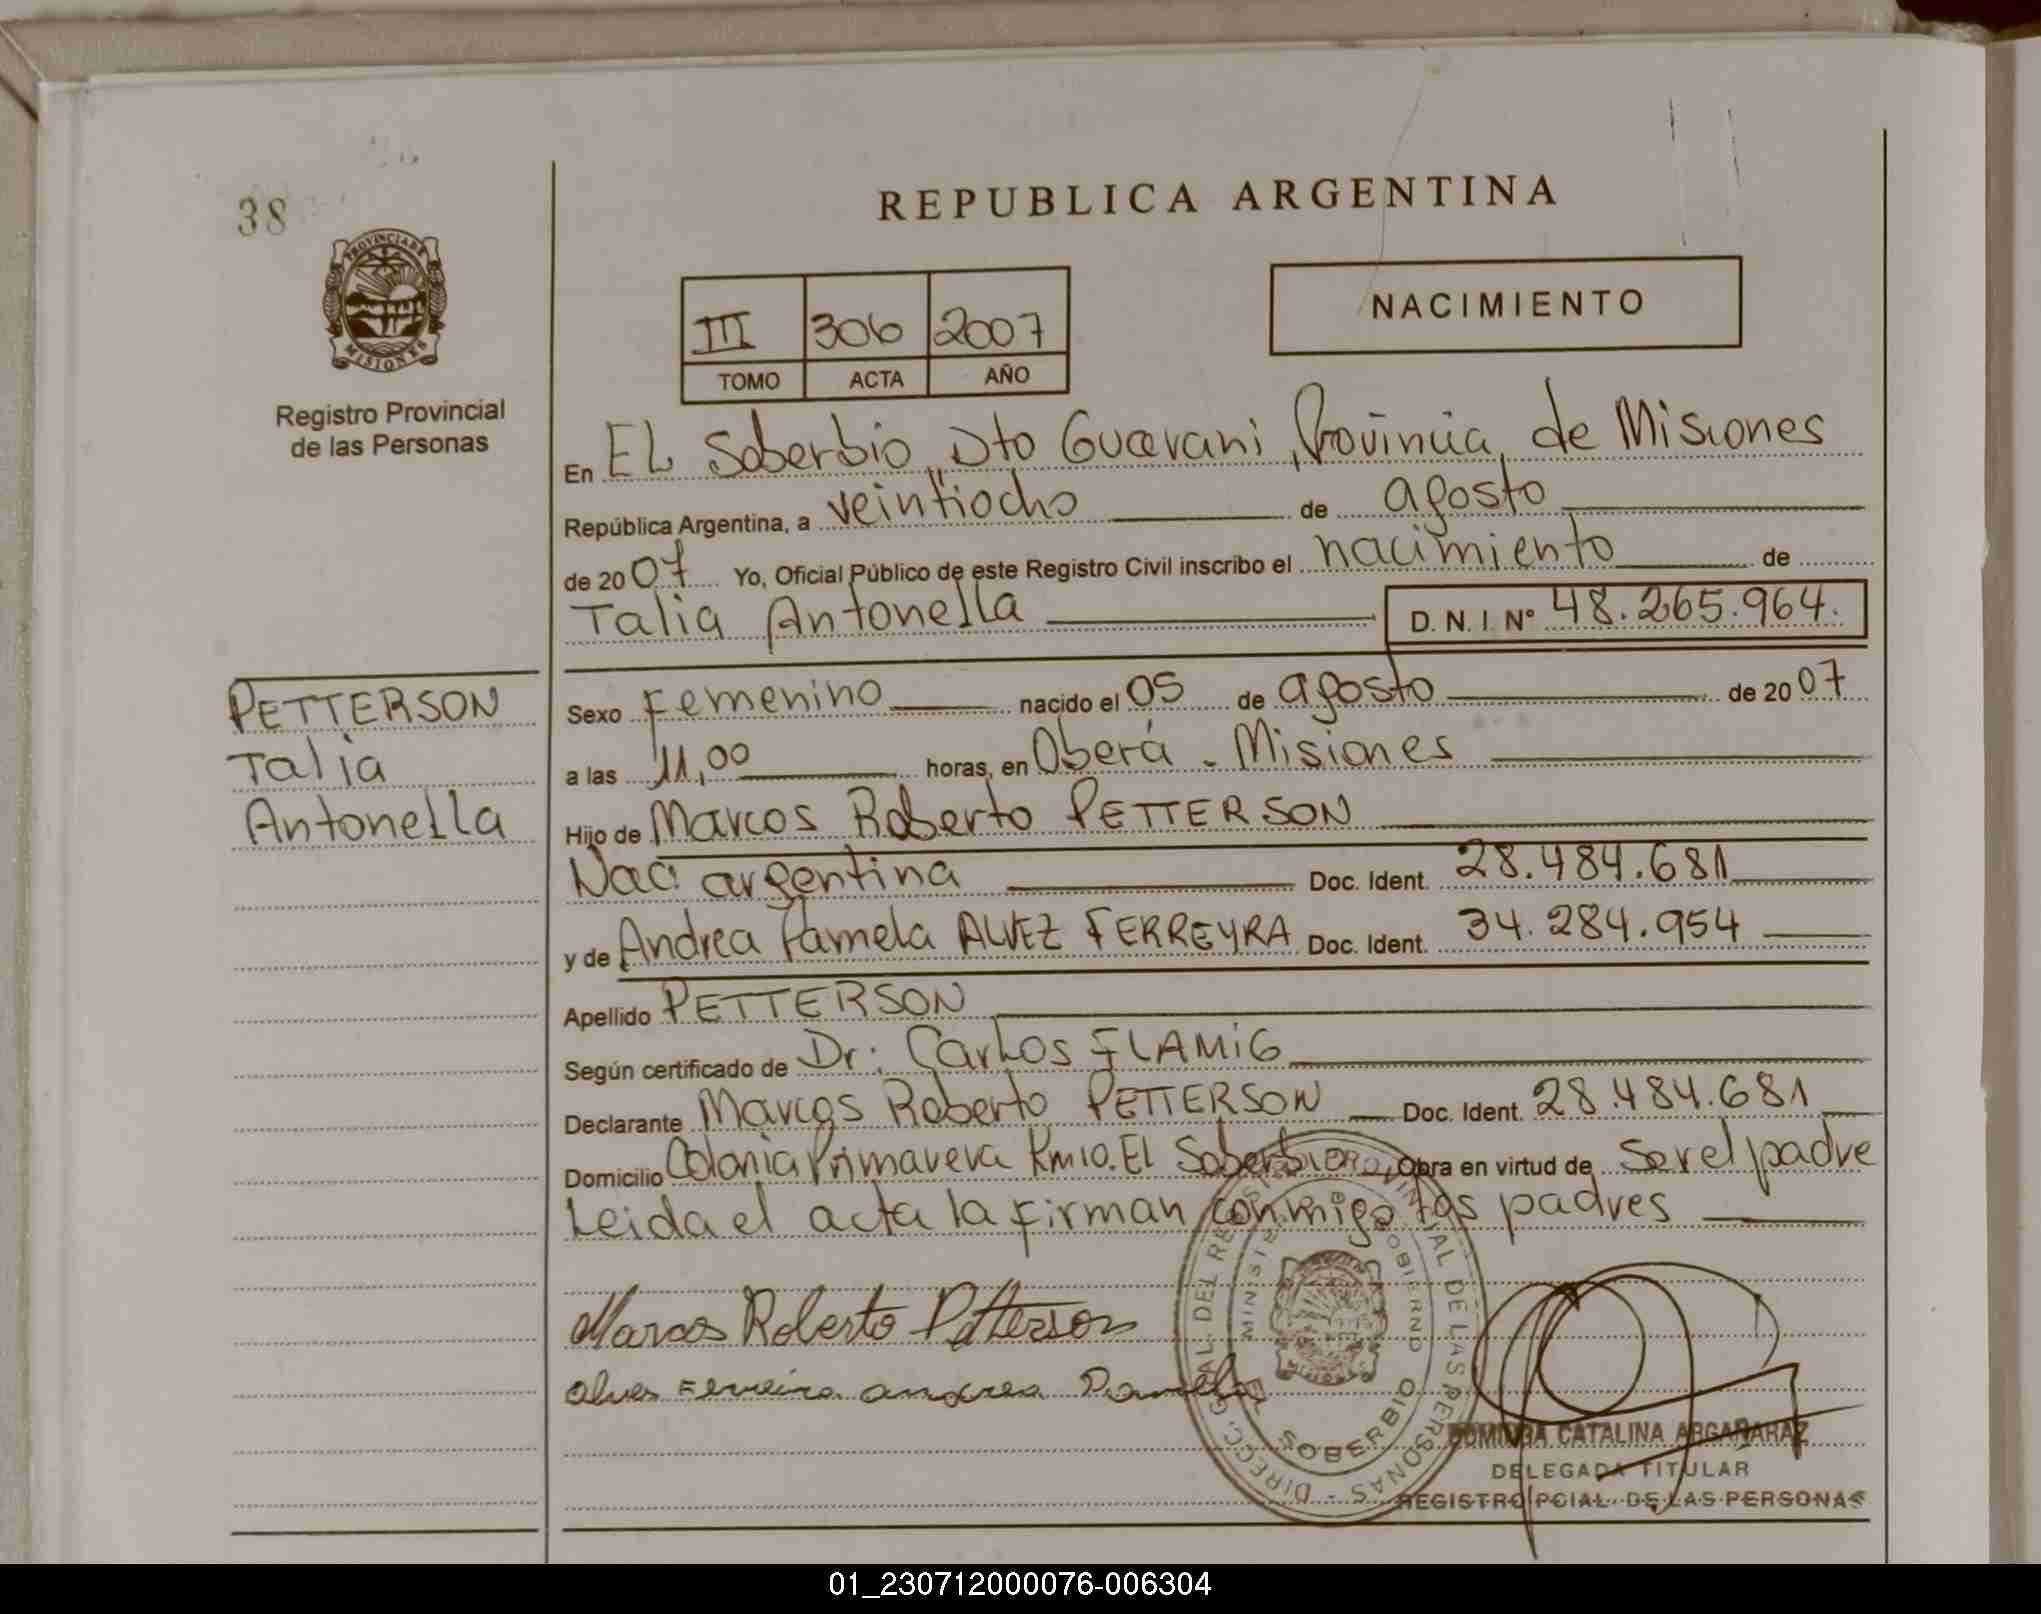 38
PROVINCIA DE
MISIONES
Registro Provincial
de las Personas
REPUBLICA ARGENTINA
III 306 2007
TOMO ACTA AÑO
NACIMIENTO
En EL Soberbio, Dto Guarani, Provincia de Misiones
República Argentina, a veintiocho de agosto
de 2007 Yo, Oficial Público de este Registro Civil inscribo el nacimiento de
Talia Antonella D. N. I. Nº 48.265.964.
PETTERSON
Talia
Antonella
Sexo Femenino nacido el 05 de agosto de 2007
a las 11,00 horas, en Oberá - Misiones
Hijo de Marcos Roberto PETTERSON
Nac. argentina Doc. Ident. 28.484.681
y de Andrea Pamela ALVEZ FERREYRA Doc. Ident. 34.284.954
Apellido PETTERSON
Según certificado de Dr: Carlos FLAMiG
Declarante Marcos Roberto PETTERSON Doc. Ident. 28.484.681
Domicilio Colonia Primavera Km10. El Soberbio Obra en virtud de ser el padre
Leida el acta la firman conmigo los padres
Marcos Roberto Petterson
Alves Ferreira andrea Pamela
DIRECC. GRAL. DEL REGISTRO PROVINCIAL DE LAS PERSONAS
MINISTERIO DE GOBIERNO
EL SOBERBIO
DOMINGA CATALINA ARGAÑARAZ
DELEGADA TITULAR
REGISTRO PCIAL. DE LAS PERSONAS
01_230712000076-006304